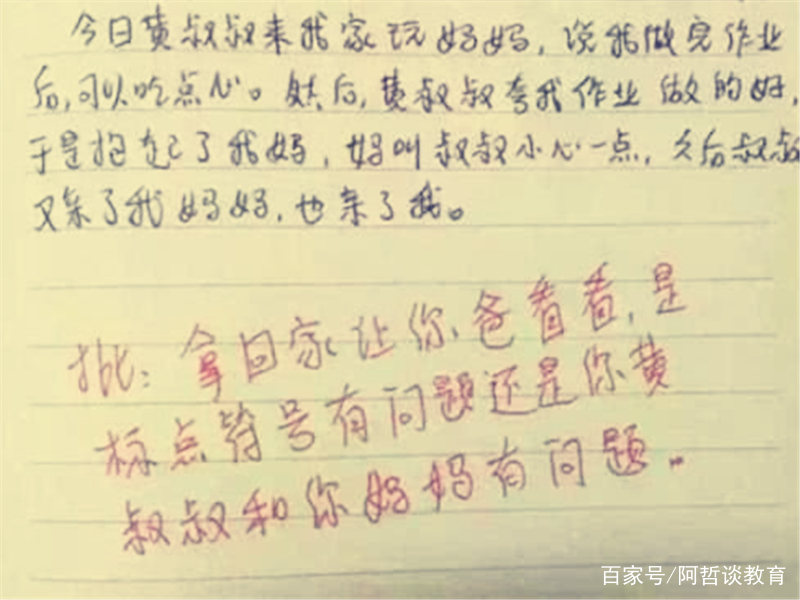 今日黄叔叔来我家玩妈妈,说我做完作业
后,可以吃点心。然后,黄叔叔夸我作业做的好,
于是抱起了我妈,妈叫叔叔小心一点,之后叔叔
又亲了我妈妈,也亲了我。
批:拿回家让你爸看看,是
标点符号有问题还是你黄
叔叔和你妈妈有问题。
百家号/阿哲谈教育